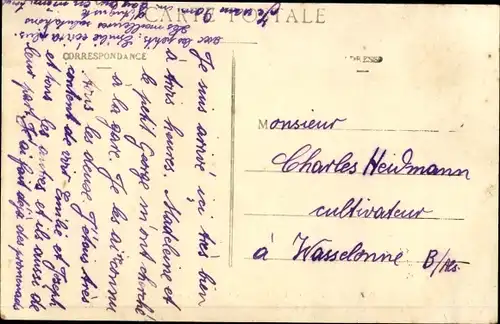 CARTE POSTALE
CORRESPONDANCE
Je suis arrivé ici très bien
à trois heures. Madeleine et
le petit George m'ont cherché
à la gare. Je les ai connue
tous les deux. J'étais très
content de voir Emilie et Joseph
et tous les autres et ils aussi de
leur part. J'ai fait déjà des promenades
avec les petits. Emilie écrira plus.
Les meilleures salutations
Monsieur
Charles Heidmann
cultivateur
à Wasselonne B/Rh.